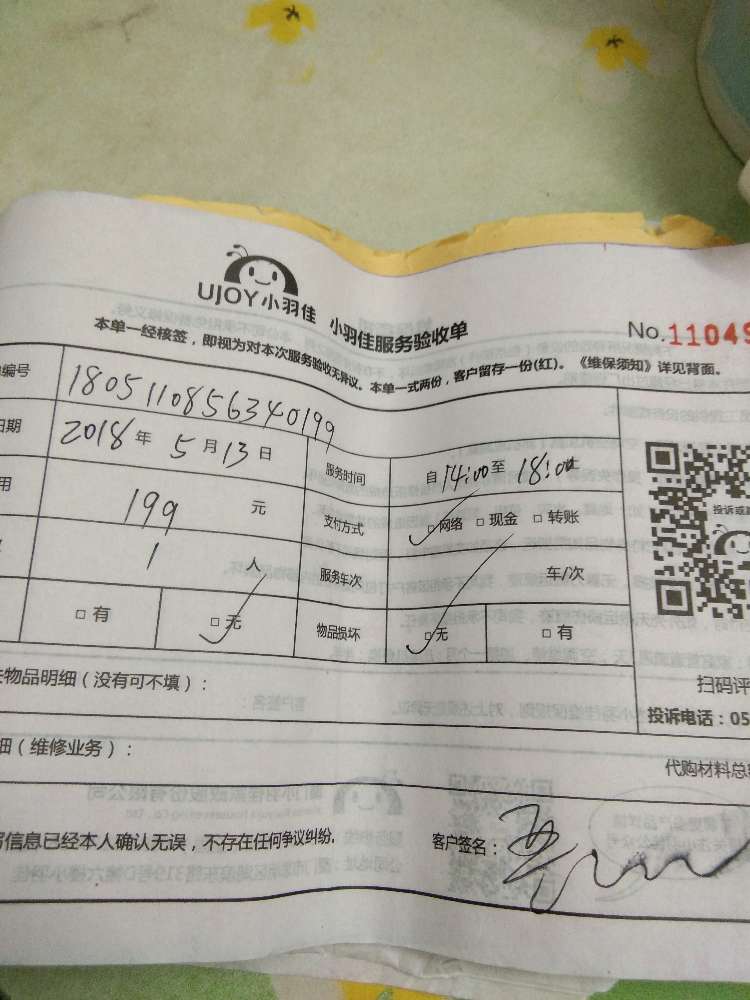 UJOY小羽佳 小羽佳服务验收单
No.11049
本单一经核签，即视为对本次服务验收无异议。本单一式两份，客户留存一份(红)。《维保须知》详见背面。
编号 1805110856340199
日期 2018年5月13日 服务时间 自14:00至18:00止
用 199 元 支付方式 □网络 □现金 □转账
1 人 服务车次 车/次
□有 □无 物品损坏 □无 □有
投诉或
扫码评
物品明细（没有可不填）：
投诉电话：05
细（维修业务）：
代购材料总
信息已经本人确认无误，不存在任何争议纠纷.
客户签名：